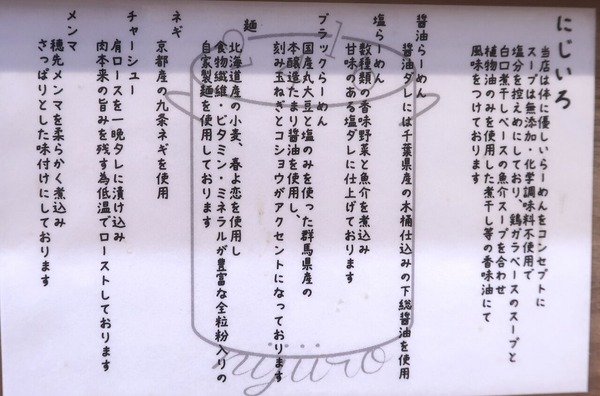 にじいろ
当店は体に優しいらーめんをコンセプトに
スープは無添加・化学調味料不使用で
塩分を控えめにしており、鶏ガラベースのスープと
白口煮干しベースの魚介スープを合わせ
植物油のみを使用した煮干し等の香味油にて
風味をつけております
醤油らーめん
醤油ダレには千葉県産の木桶仕込みの下総醤油を使用
塩らーめん
数種類の香味野菜と魚介を煮込み
甘味のある塩ダレに仕上げております
ブラックらーめん
国産丸大豆と塩のみを使った群馬県産の
本醸造たまり醤油を使用し、
刻み玉ねぎとコショウがアクセントになっております
麺
北海道産の小麦、春よ恋を使用し
食物繊維・ビタミン・ミネラルが豊富な全粒粉入りの
自家製麺を使用しております
ネギ
京都産の九条ネギを使用
チャーシュー
肩ロースを一晩タレに漬け込み
肉本来の旨みを残す為低温でローストしております
メンマ
穂先メンマを柔らかく煮込み
さっぱりとした味付けにしております